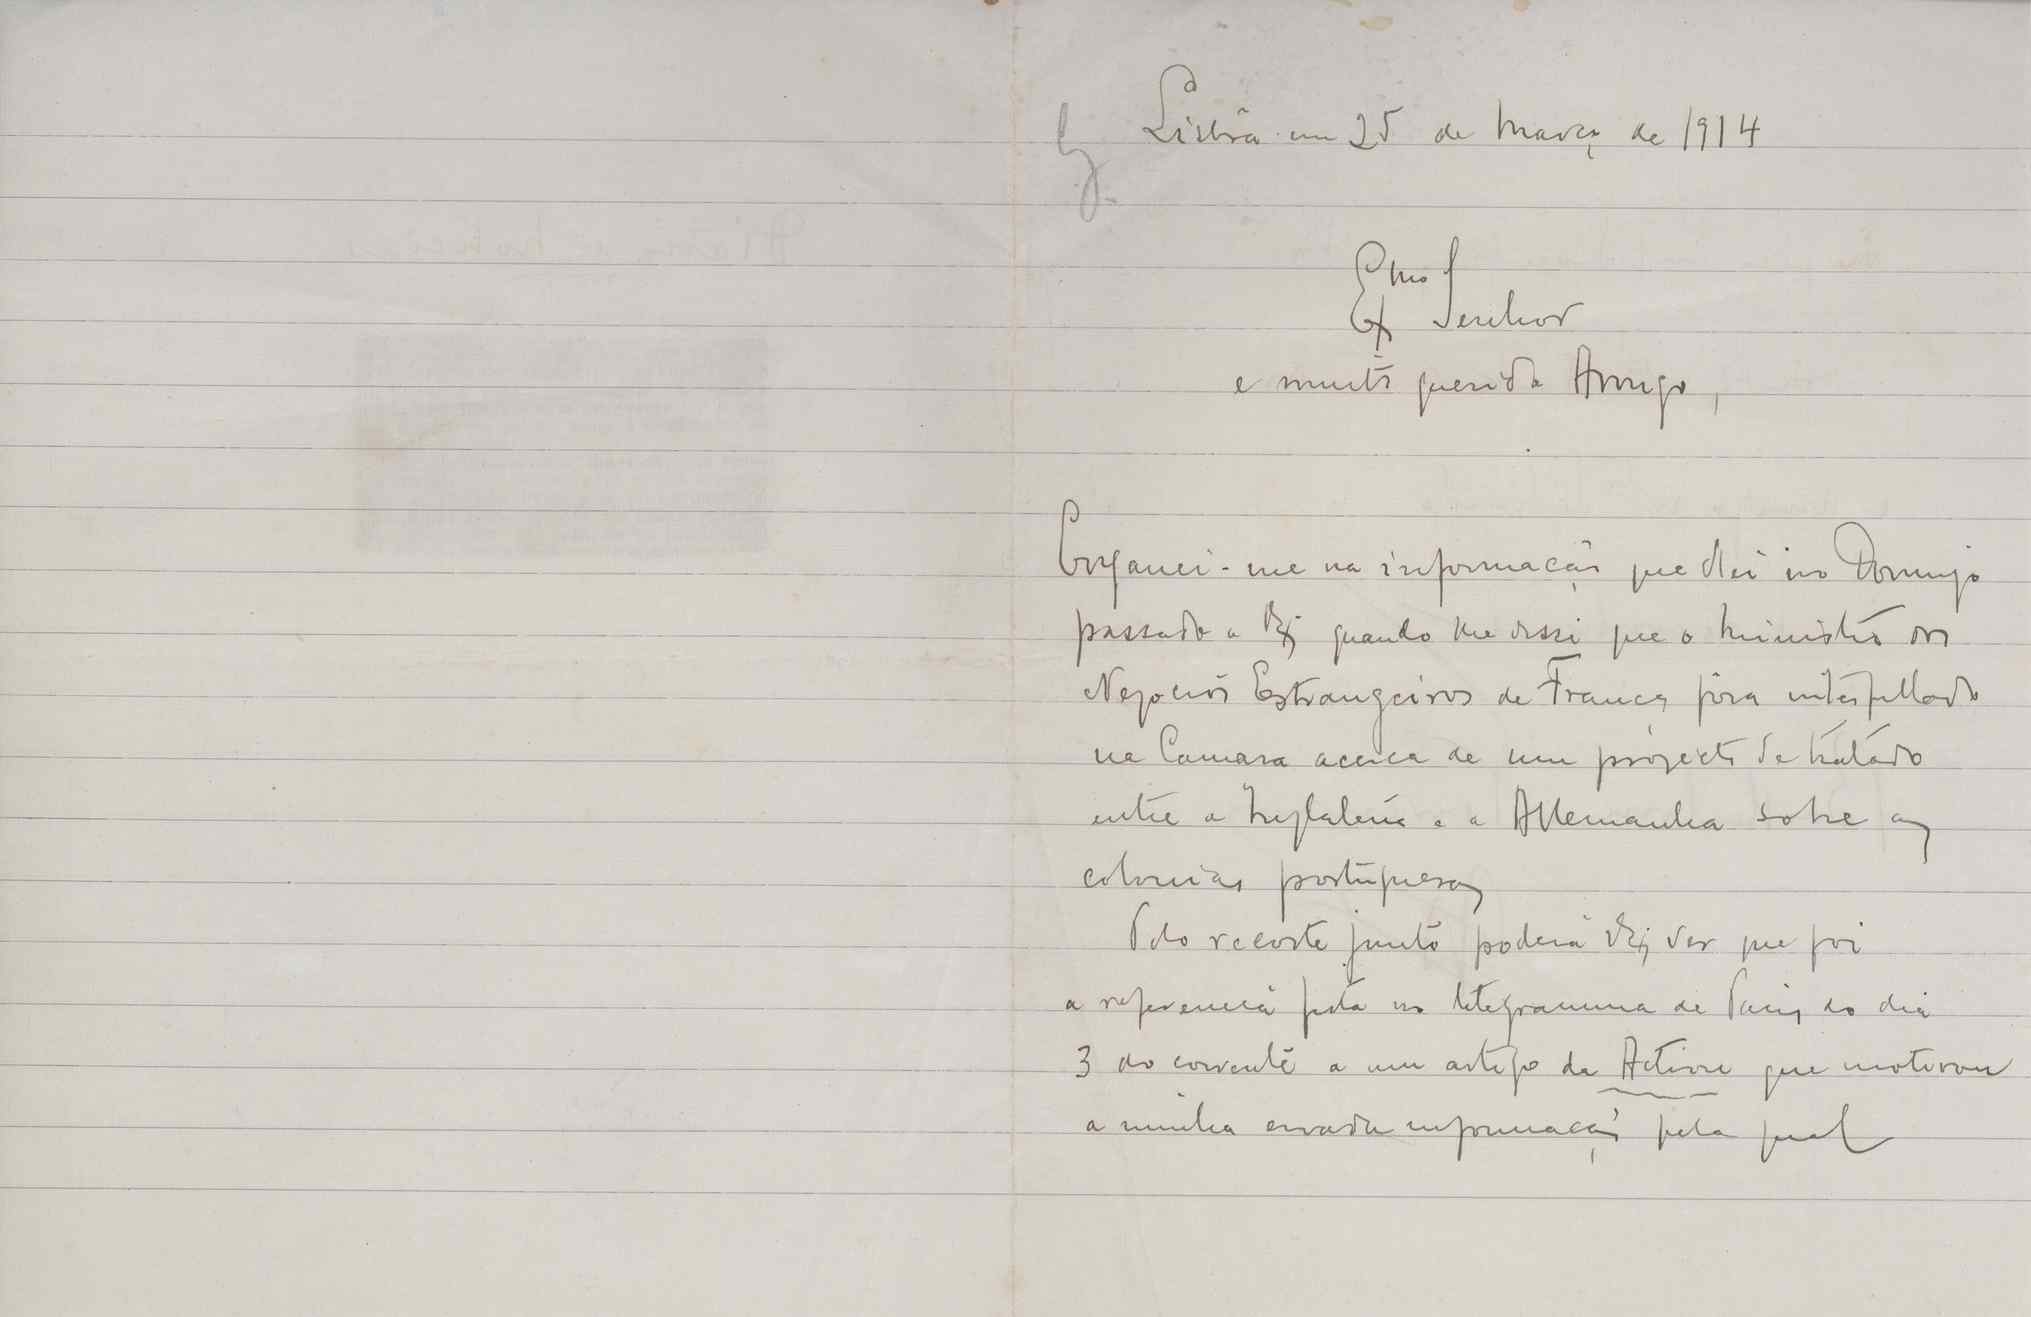 Lisbôa em 25 de Março de 1914
Exmo Senhor
e muito querido Amigo,
Enganei-me na informação que dei no Domingo
passado a V. Ex. quando lhe disse que o Ministro dos
Negocios Estrangeiros de França fôra interpellado
na Camara acerca de um projecto de tratado
entre a Inglaterra e a Allemanha sobre as
colonias portuguesas
Pelo recorte junto poderá V. Ex. ver que foi
a referencia feita no telegramma de Paris do dia
3 do corrente a um artigo da Action que motivou
a minha errada informação pela qual